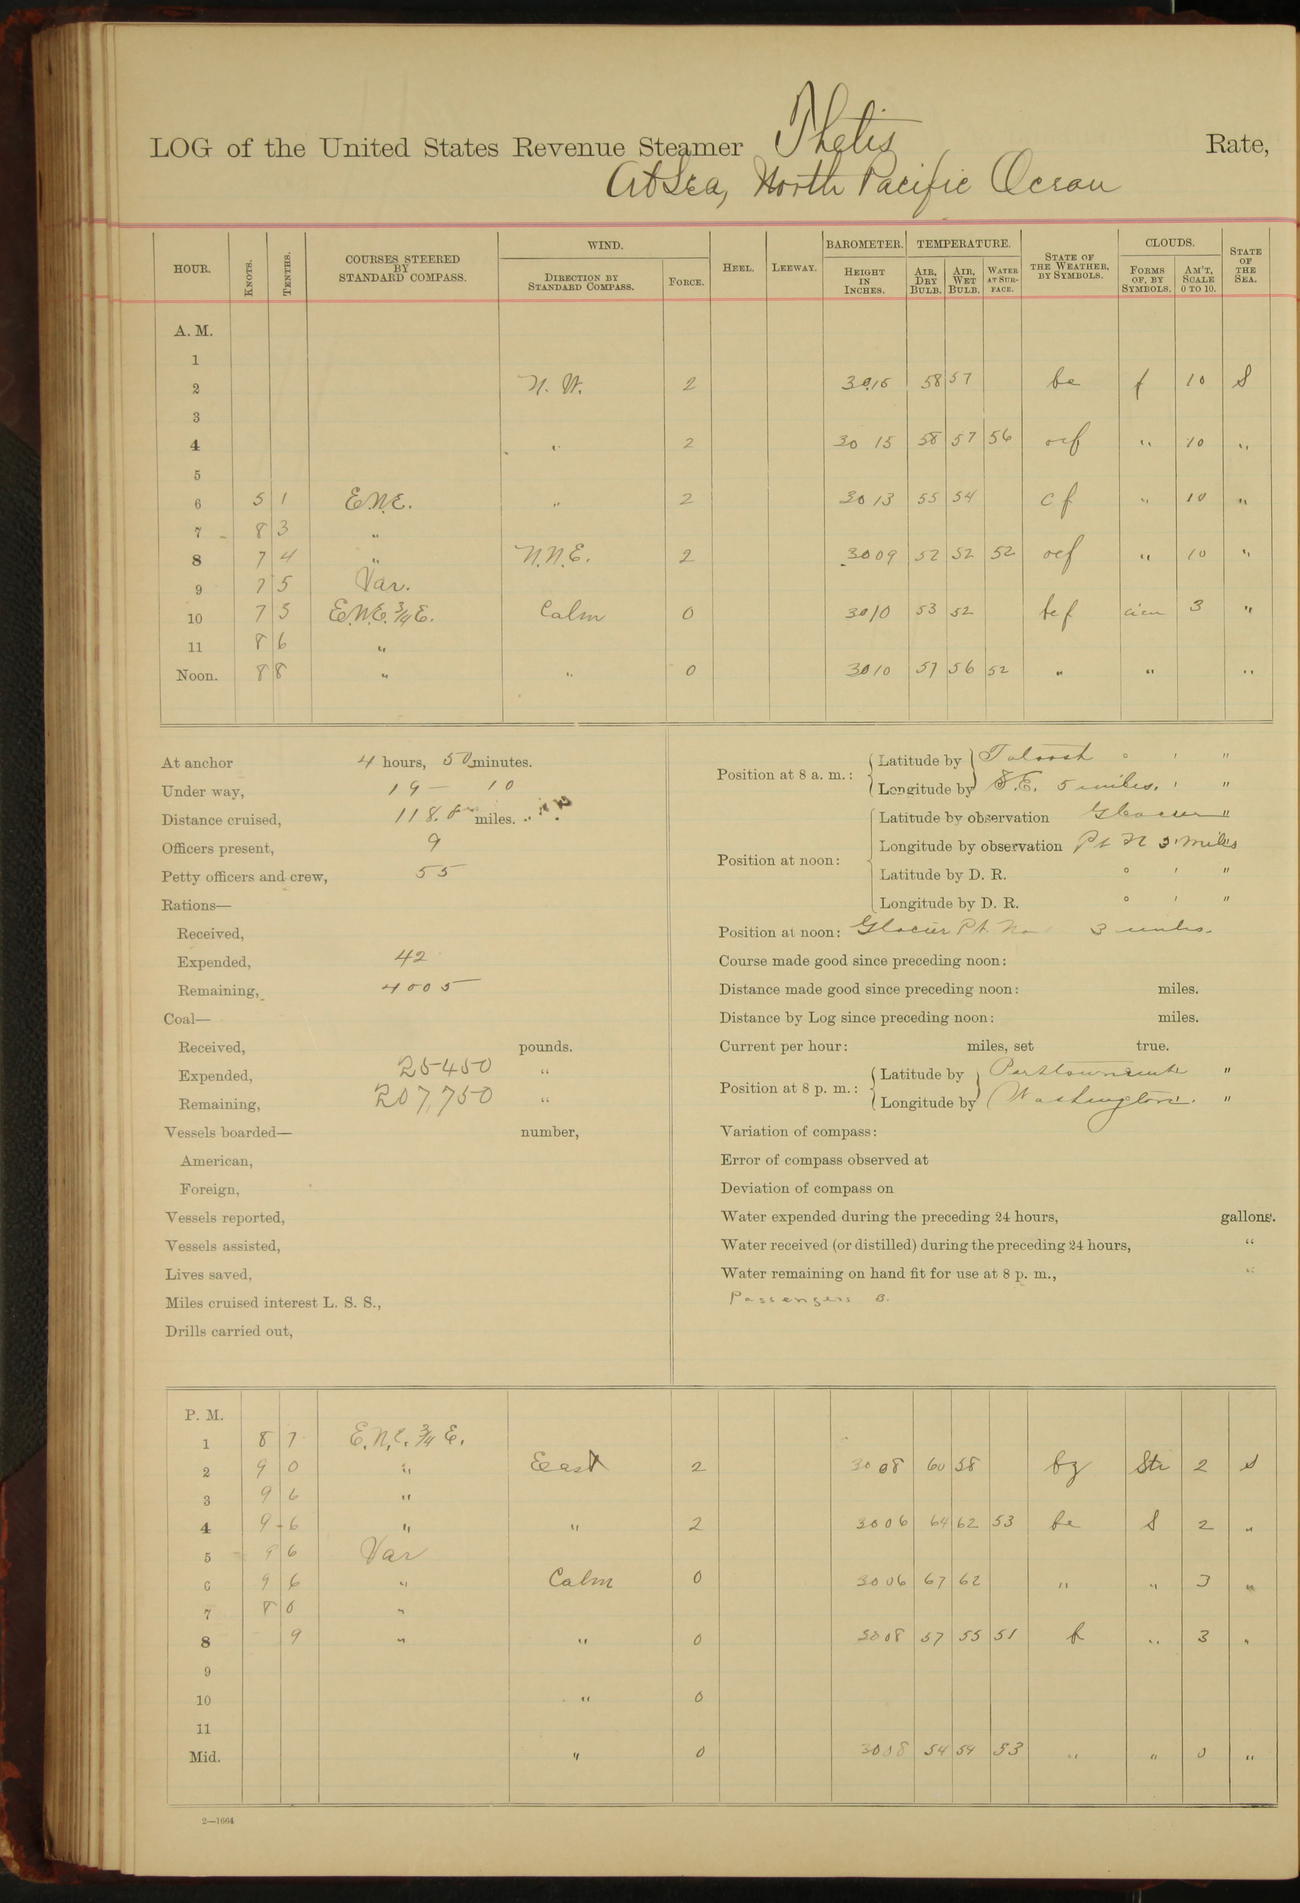 LOG of the United States Revenue Steamer Thetis Rate,
At Sea, North Pacific Ocean
HOUR. KNOTS. TENTHS. COURSES STEERED BY STANDARD COMPASS. WIND. DIRECTION BY STANDARD COMPASS. FORCE. HEEL. LEEWAY. BAROMETER. HEIGHT IN INCHES. TEMPERATURE. AIR, DRY BULB. AIR, WET BULB. WATER AT SURFACE. STATE OF THE WEATHER, BY SYMBOLS. CLOUDS. FORMS OF, BY SYMBOLS. AM'T, SCALE 0 TO 10. STATE OF THE SEA.
A. M.
1
2 N. W. 2 30.15 58 57 bc f 10 S
3
4 " 2 30 15 58 57 56 ocf " 10 "
5
6 5 1 E.N.E. " 2 30 13 55 54 c f " 10 "
7 8 3 "
8 7 4 " N.N.E. 2 30 09 52 52 52 ocf " 10 "
9 7 5 Var.
10 7 5 E.N.E. 3/4 E. Calm 0 30 10 53 52 bcf 3 "
11 8 6 "
Noon. 8 8 " " 0 30 10 57 56 52 " " "
At anchor 4 hours, 50 minutes.
Under way, 19 — 10
Distance cruised, 118. miles.
Officers present, 9
Petty officers and crew, 55
Rations—
Received,
Expended, 42
Remaining, 4005
Coal—
Received, pounds.
Expended, 25450 "
Remaining, 207,750 "
Vessels boarded— number,
American,
Foreign,
Vessels reported,
Vessels assisted,
Lives saved,
Miles cruised interest L. S. S.,
Drills carried out,
Position at 8 a. m.: Latitude by Tatoosh ° ' "
Longitude by S.E. 5 miles. ' "
Position at noon: Latitude by observation Glacier "
Longitude by observation Pt N 3 miles
Latitude by D. R. ° ' "
Longitude by D. R. ° ' "
Position at noon: Glacier Pt. No 3 miles.
Course made good since preceding noon:
Distance made good since preceding noon: miles.
Distance by Log since preceding noon: miles.
Current per hour: miles, set true.
Position at 8 p. m.: Latitude by Port Townsend "
Longitude by Washington. "
Variation of compass:
Error of compass observed at
Deviation of compass on
Water expended during the preceding 24 hours, gallons.
Water received (or distilled) during the preceding 24 hours, "
Water remaining on hand fit for use at 8 p. m., "
Passengers
P. M.
1 8 7 E.N.E. 3/4 E.
2 9 0 " East 2 30 08 60 58 bz Str 2 S
3 9 6 "
4 9 6 " " 2 30 06 64 62 53 bc S 2 "
5 9 6 Var
6 9 6 " Calm 0 30 06 67 62 " " 3 "
7 8 0 "
8 9 " " 0 30 08 57 55 51 b " 3 "
9
10 " 0
11
Mid. " 0 30 08 54 54 53 " " 0 "
2—1664